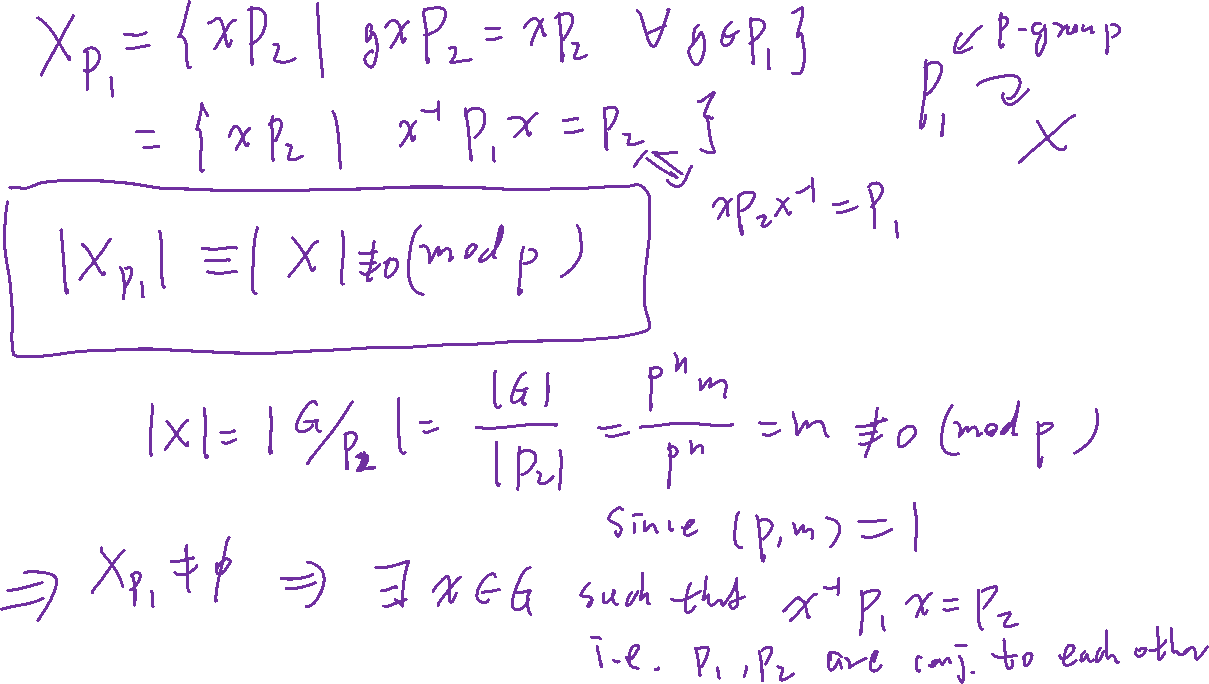 X_{P_1} = { xP_2 | gxP_2 = xP_2 ∀ g ∈ P_1 }
P_1 ↷ X ← p-group
= { xP_2 | x^{-1} P_1 x = P_2 }
⇔ xP_2x^{-1} = P_1
|X_{P_1}| ≡ |X| ≢ 0 (mod p)
|X| = |G/P_2| = |G|/|P_2| = p^n m / p^n = m ≢ 0 (mod p)
since (p,m) = 1
⇒ X_{P_1} ≠ ϕ ⇒ ∃ x ∈ G such that x^{-1} P_1 x = P_2
i.e. P_1, P_2 are conj. to each other